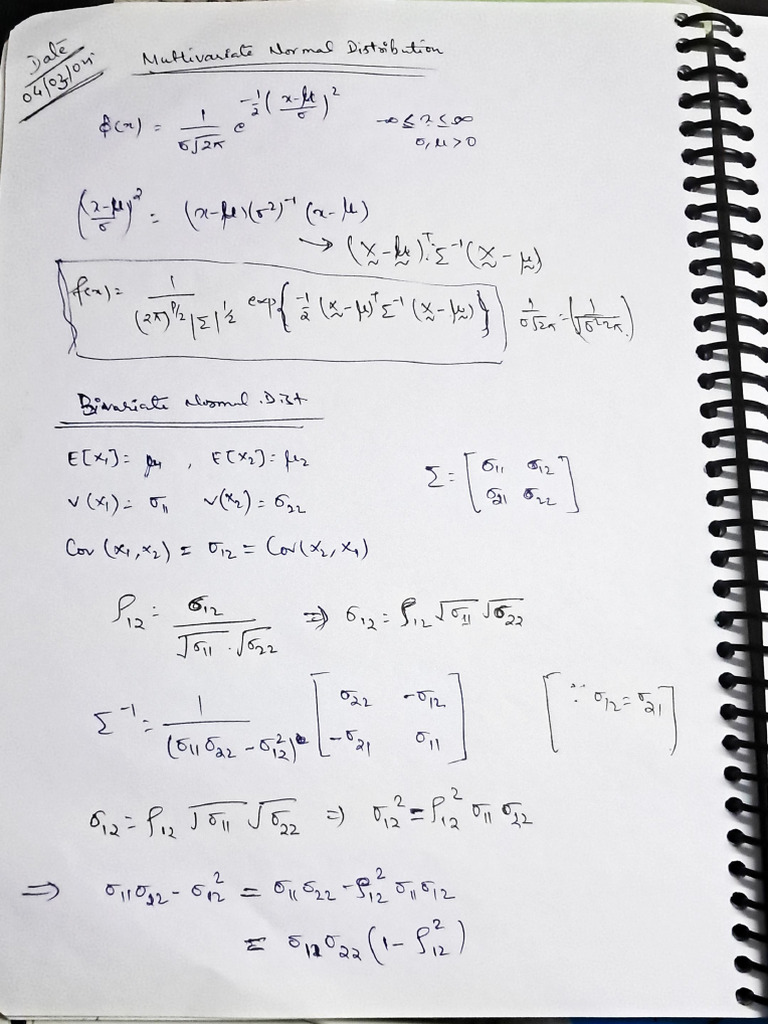 Date
04/03/04
Multivariate Normal Distribution
f(x) = 1/(σ√2π) e^(-1/2 ((x-μ)/σ)^2) -∞ ≤ x ≤ ∞
σ, μ > 0
((x-μ)/σ)^2 = (x-μ)(σ^2)^-1 (x-μ)
→ (x-μ)^T Σ^-1 (x-μ)
f(x) = 1/((2π)^(p/2) |Σ|^(1/2)) exp{-1/2 (x-μ)^T Σ^-1 (x-μ)} 1/(σ√2π) = (1/√(σ^2 2π))
Bivariate Normal Dist
E[x1] = μ1 , E[x2] = μ2
V(x1) = σ11 V(x2) = σ22
Σ = [σ11 σ12
σ21 σ22]
Cov(x1, x2) = σ12 = Cov(x2, x1)
ρ12 = σ12/(√σ11 . √σ22) ⇒ σ12 = ρ12 √σ11 √σ22
Σ^-1 = 1/(σ11 σ22 - σ12^2) [σ22 -σ12
-σ21 σ11] [∵ σ12 = σ21]
σ12 = ρ12 √σ11 √σ22 ⇒ σ12^2 = ρ12^2 σ11 σ22
⇒ σ11 σ22 - σ12^2 = σ11 σ22 - ρ12^2 σ11 σ12
= σ11 σ22 (1 - ρ12^2)